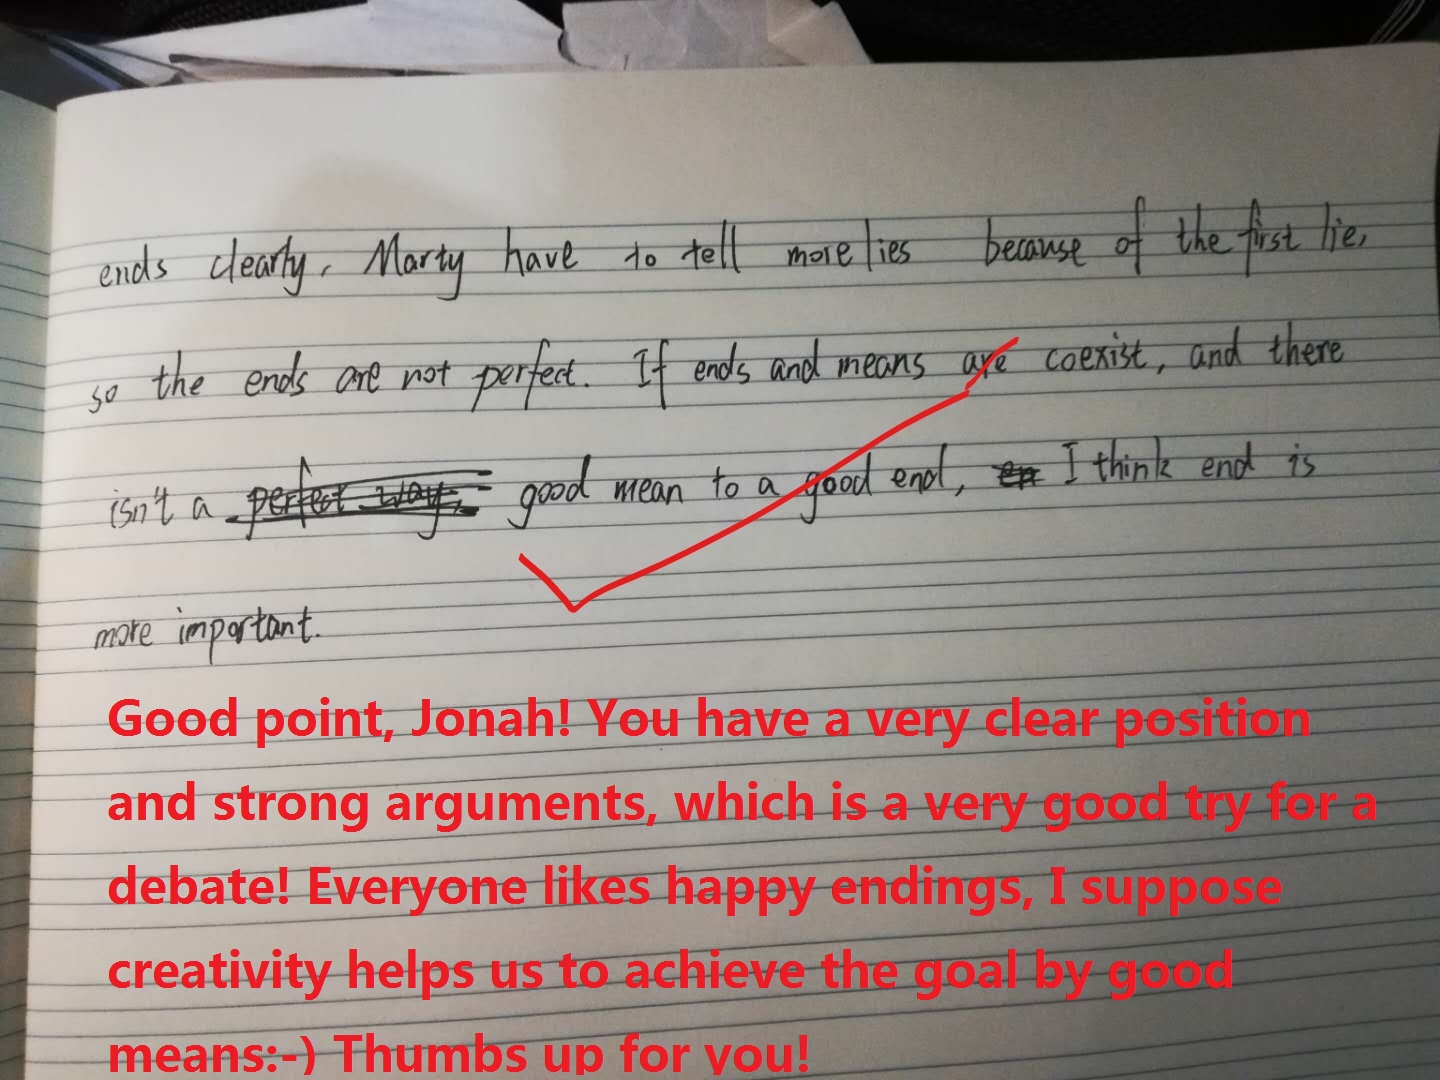 ends clearly, Marty have to tell more lies because of the first lie,
so the ends are not perfect. If ends and means are coexist, and there
isn't a perfect way, good mean to a good end, en I think end is
more important.
Good point, Jonah! You have a very clear position
and strong arguments, which is a very good try for a
debate! Everyone likes happy endings, I suppose
creativity helps us to achieve the goal by good
means:-) Thumbs up for you!